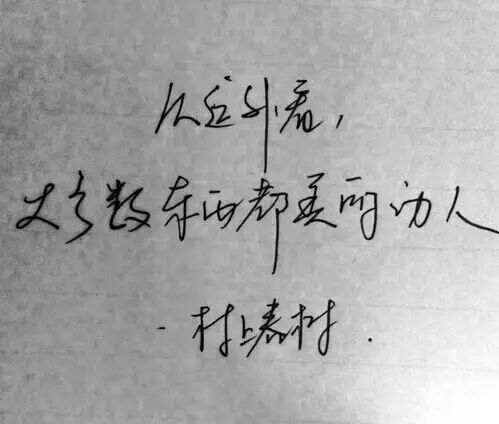 从远外看,
大多数东西都美丽动人
- 村上春树.